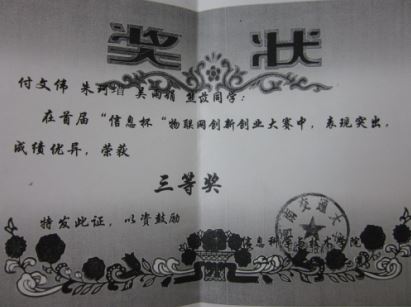 奖状
付文伟 朱 吴雨 同学：
在首届“信息杯”物联网创新创业大赛中，表现突出，
成绩优异，荣获
三等奖
特发此证，以资鼓励
交通大
信息科学与技术学院